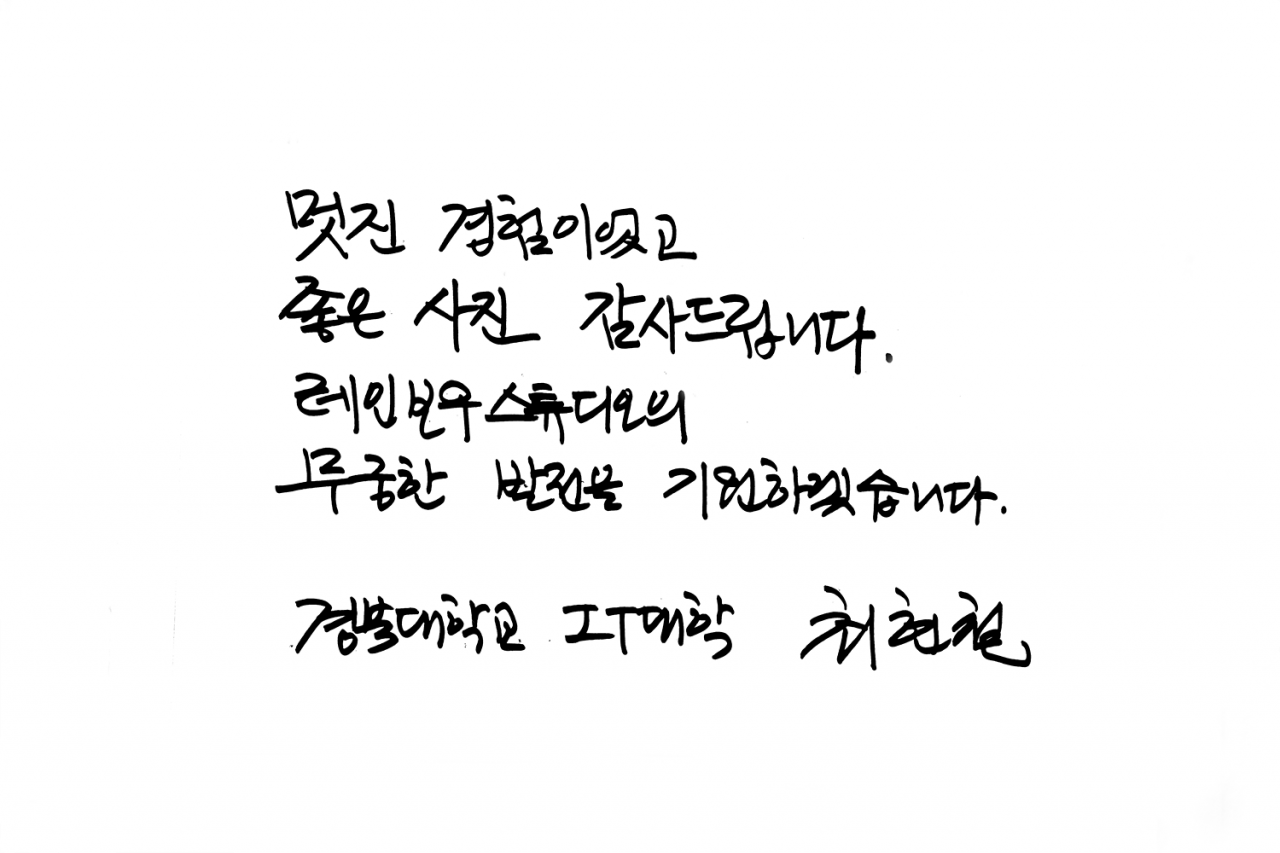 멋진 경험이었고
좋은 사진 감사드립니다.
레인보우스튜디오의
무궁한 발전을 기원하겠습니다.
경북대학교 IT대학 최현철